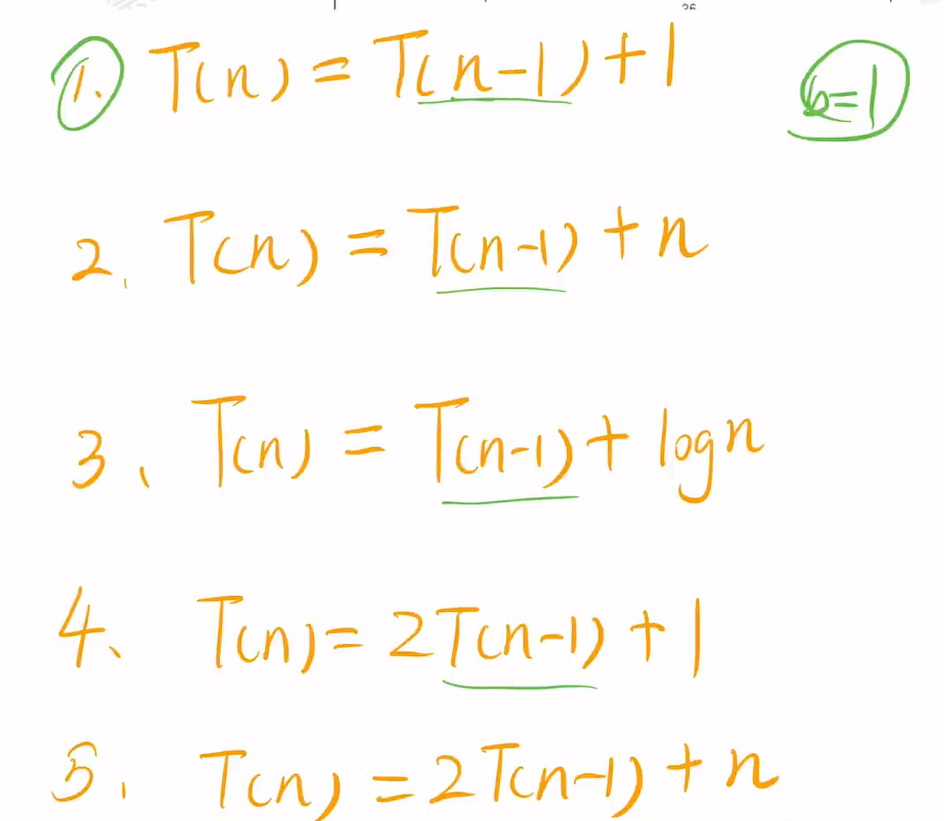 1. T(n) = T(n-1) + 1 b=1
2. T(n) = T(n-1) + n
3、T(n) = T(n-1) + logn
4、T(n) = 2T(n-1) + 1
5. T(n) = 2T(n-1) + n